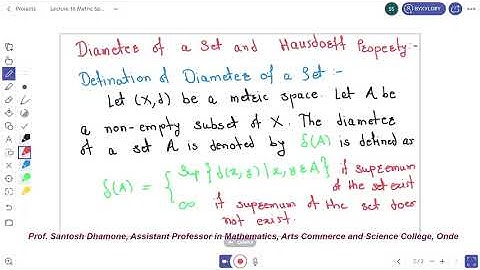 Presents
Lecture 16 Metric Sp...
SS
BYXYLORY
Diameter of a Set and Hausdorff Property:-
Defination of Diameter of a Set :-
Let (X,d) be a metric space. Let A be
a non-empty subset of X. The diameter
of a set A is denoted by δ(A) is defined as
δ(A) = { Sup { d(x,y) | x,y ∈ A } if supremum
of the set exist
∞ if supremum of the set does
not exist.
Prof. Santosh Dhamone, Assistant Professor in Mathematics, Arts Commerce and Science College, Onde